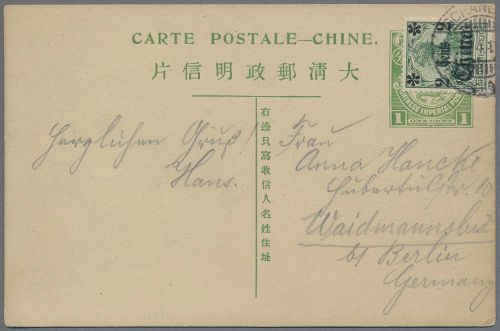 CARTE POSTALE—CHINE.
片信明政郵清大
右邊只寫收信人名姓住址
2 2
China
CHINESE IMPERIAL POST
1 1
ONE CENT
Herzlichen Gruß!
Hans.
Frau
Anna Hancke
Hubertusstr. 10
Waidmannslust
b/ Berlin
Germany